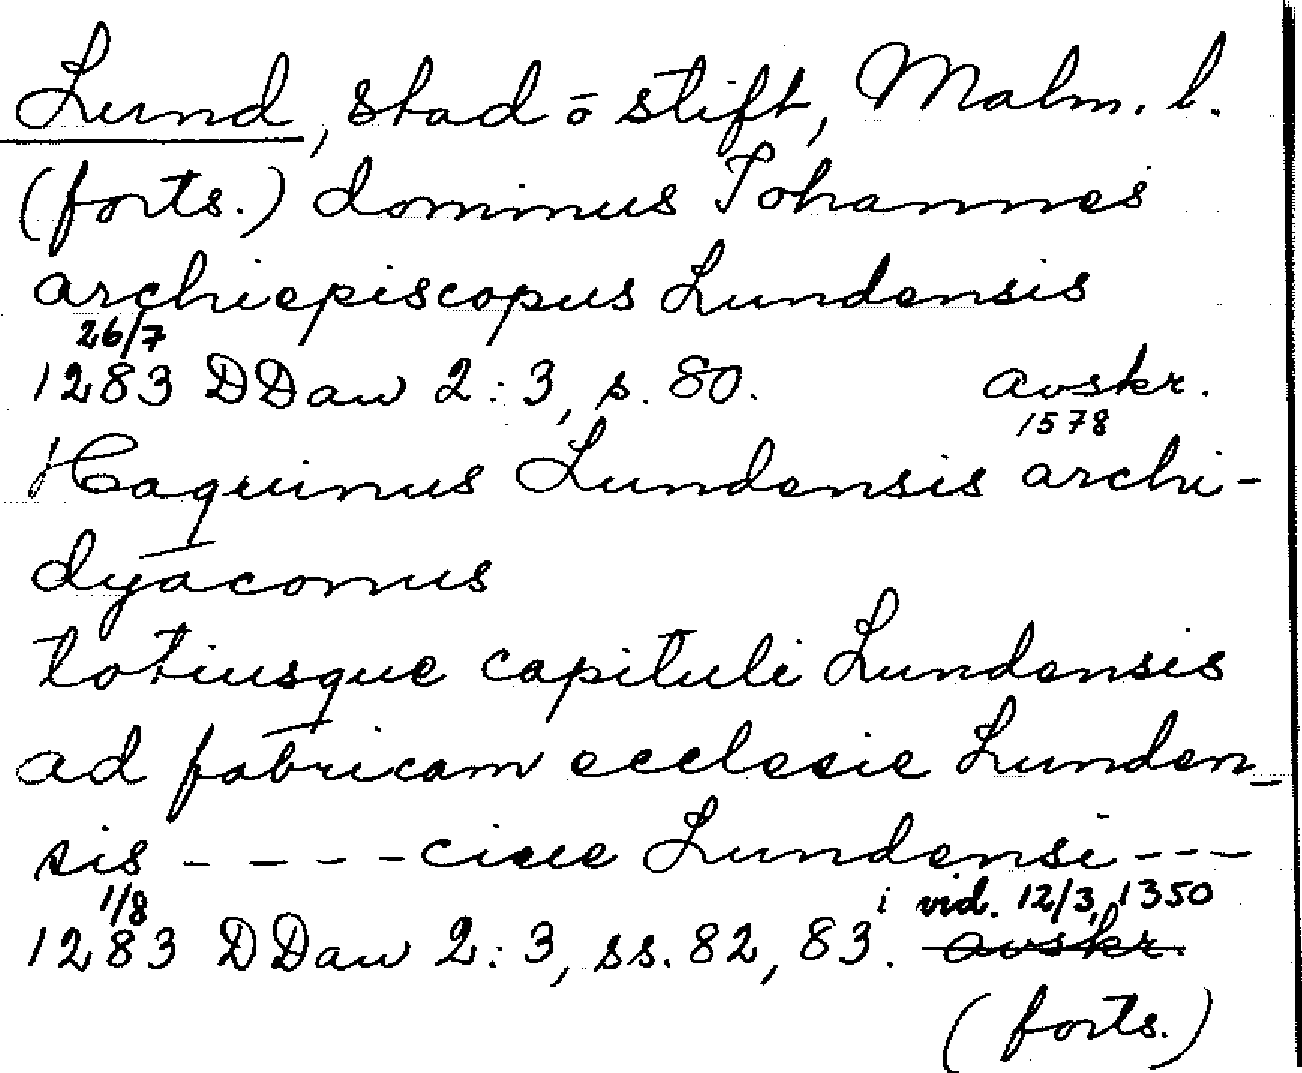 Lund, stad o stift, Malm. l.
(forts.) dominus Johannes
archiepiscopus Lundensis
26/7
1283 DDan 2:3, s. 80. avskr.
1578
Haquinus Lundensis archi-
dyaconus
totiusque capituli Lundensis
ad fabricam ecclesie Lunden-
sis - - - - ciue Lundensi - - -
1/8 i vid. 12/3, 1350
1283 DDan 2:3, ss. 82, 83. avskr.
(forts.)